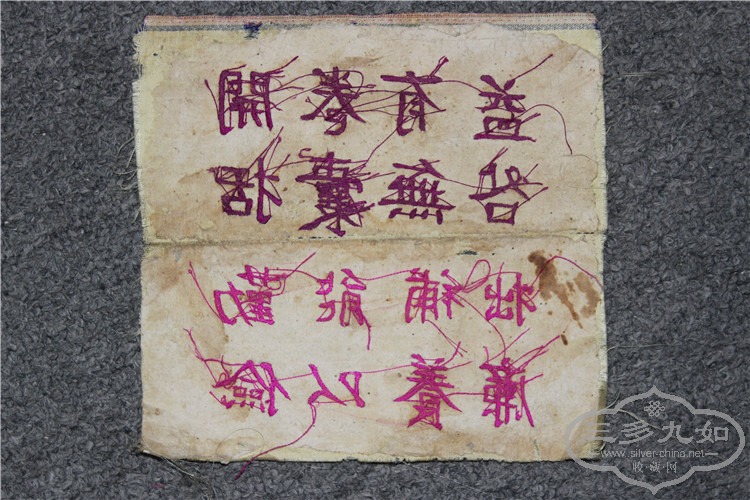 開卷有
括囊無咎
勤能補拙
儉以養廉
三多九如
www.silver-china.net
收藏网